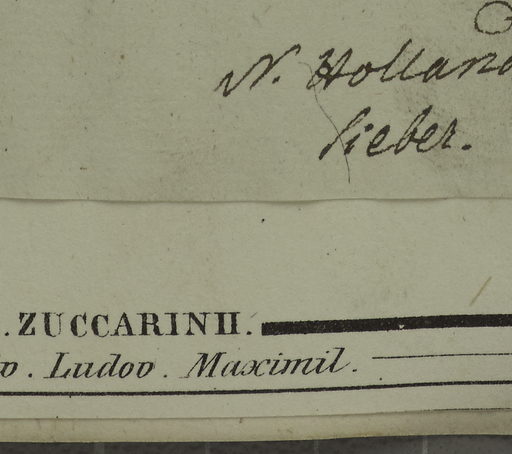 N. Holland
Sieber.
. ZUCCARINII.
v. Ludov. Maximil.